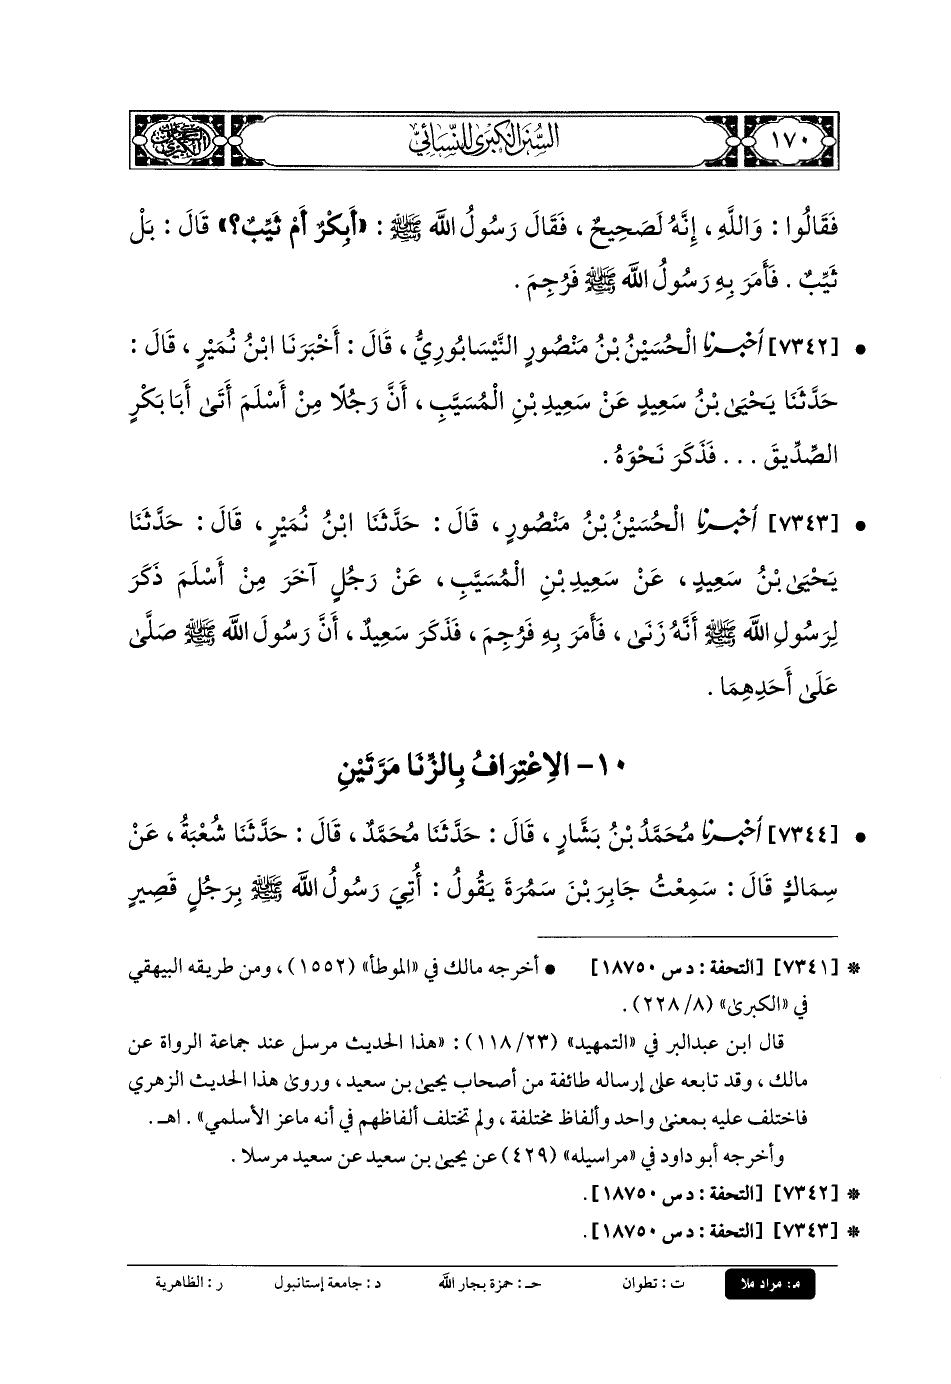 ١٧٠
السنن الكبرى للنسائي
فَقَالُوا : وَاللَّهِ ، إِنَّهُ لَصَحِيحٌ ، فَقَالَ رَسُولُ اللَّه ﷺ : «أَبِكْرٌ أَمْ ثَيِّبٌ؟» قَالَ : بَلْ
ثَيِّبٌ . فَأَمَرَ بِهِ رَسُولُ اللَّه ﷺ فَرُجِمَ .
• [٧٣٤٢] أَخْبَرَنَا الْحُسَيْنُ بْنُ مَنْصُورٍ النَّيْسَابُورِيُّ ، قَالَ : أَخْبَرَنَا ابْنُ نُمَيْرٍ ، قَالَ :
حَدَّثَنَا يَحْيَى بْنُ سَعِيدٍ عَنْ سَعِيدِ بْنِ الْمُسَيَّبِ ، أَنَّ رَجُلًا مِنْ أَسْلَمَ أَتَى أَبَا بَكْرٍ
الصِّدِّيقَ ... فَذَكَرَ نَحْوَهُ .
• [٧٣٤٣] أَخْبَرَنَا الْحُسَيْنُ بْنُ مَنْصُورٍ ، قَالَ : حَدَّثَنَا ابْنُ نُمَيْرٍ ، قَالَ : حَدَّثَنَا
يَحْيَى بْنُ سَعِيدٍ ، عَنْ سَعِيدِ بْنِ الْمُسَيَّبِ ، عَنْ رَجُلٍ آخَرَ مِنْ أَسْلَمَ ذَكَرَ
لِرَسُولِ اللَّه ﷺ أَنَّهُ زَنَى ، فَأَمَرَ بِهِ فَرُجِمَ ، فَذَكَرَ سَعِيدٌ ، أَنَّ رَسُولَ اللَّه ﷺ صَلَّى
عَلَى أَحَدِهِمَا .
١٠- الِاعْتِرَافُ بِالزِّنَا مَرَّتَيْنِ
• [٧٣٤٤] أَخْبَرَنَا مُحَمَّدُ بْنُ بَشَّارٍ ، قَالَ : حَدَّثَنَا مُحَمَّدٌ ، قَالَ : حَدَّثَنَا شُعْبَةُ ، عَنْ
سِمَاكٍ قَالَ : سَمِعْتُ جَابِرَ بْنَ سَمُرَةَ يَقُولُ : أُتِيَ رَسُولُ اللَّه ﷺ بِرَجُلٍ قَصِيرٍ
* [٧٣٤١] [التحفة : د س ١٨٧٥٠] • أخرجه مالك في «الموطأ» (١٥٥٢) ، ومن طريقه البيهقي
في «الكبرى» (٨/ ٢٢٨) .
قال ابن عبدالبر في «التمهيد» (٢٣/ ١١٨) : «هذا الحديث مرسل عند جماعة الرواة عن
مالك ، وقد تابعه على إرساله طائفة من أصحاب يحيى بن سعيد ، وروى هذا الحديث الزهري
فاختلف عليه بمعنى واحد وألفاظ مختلفة ، ولم تختلف ألفاظهم في أنه ماعز الأسلمي» . اهـ .
وأخرجه أبو داود في «مراسيله» (٤٢٩) عن يحيى بن سعيد عن سعيد مرسلا .
* [٧٣٤٢] [التحفة : د س ١٨٧٥٠] .
* [٧٣٤٣] [التحفة : د س ١٨٧٥٠] .
م: مراد ملا ت : تطوان حـ : حمزة بجار اللَّه د : جامعة إستانبول ر : الظاهرية